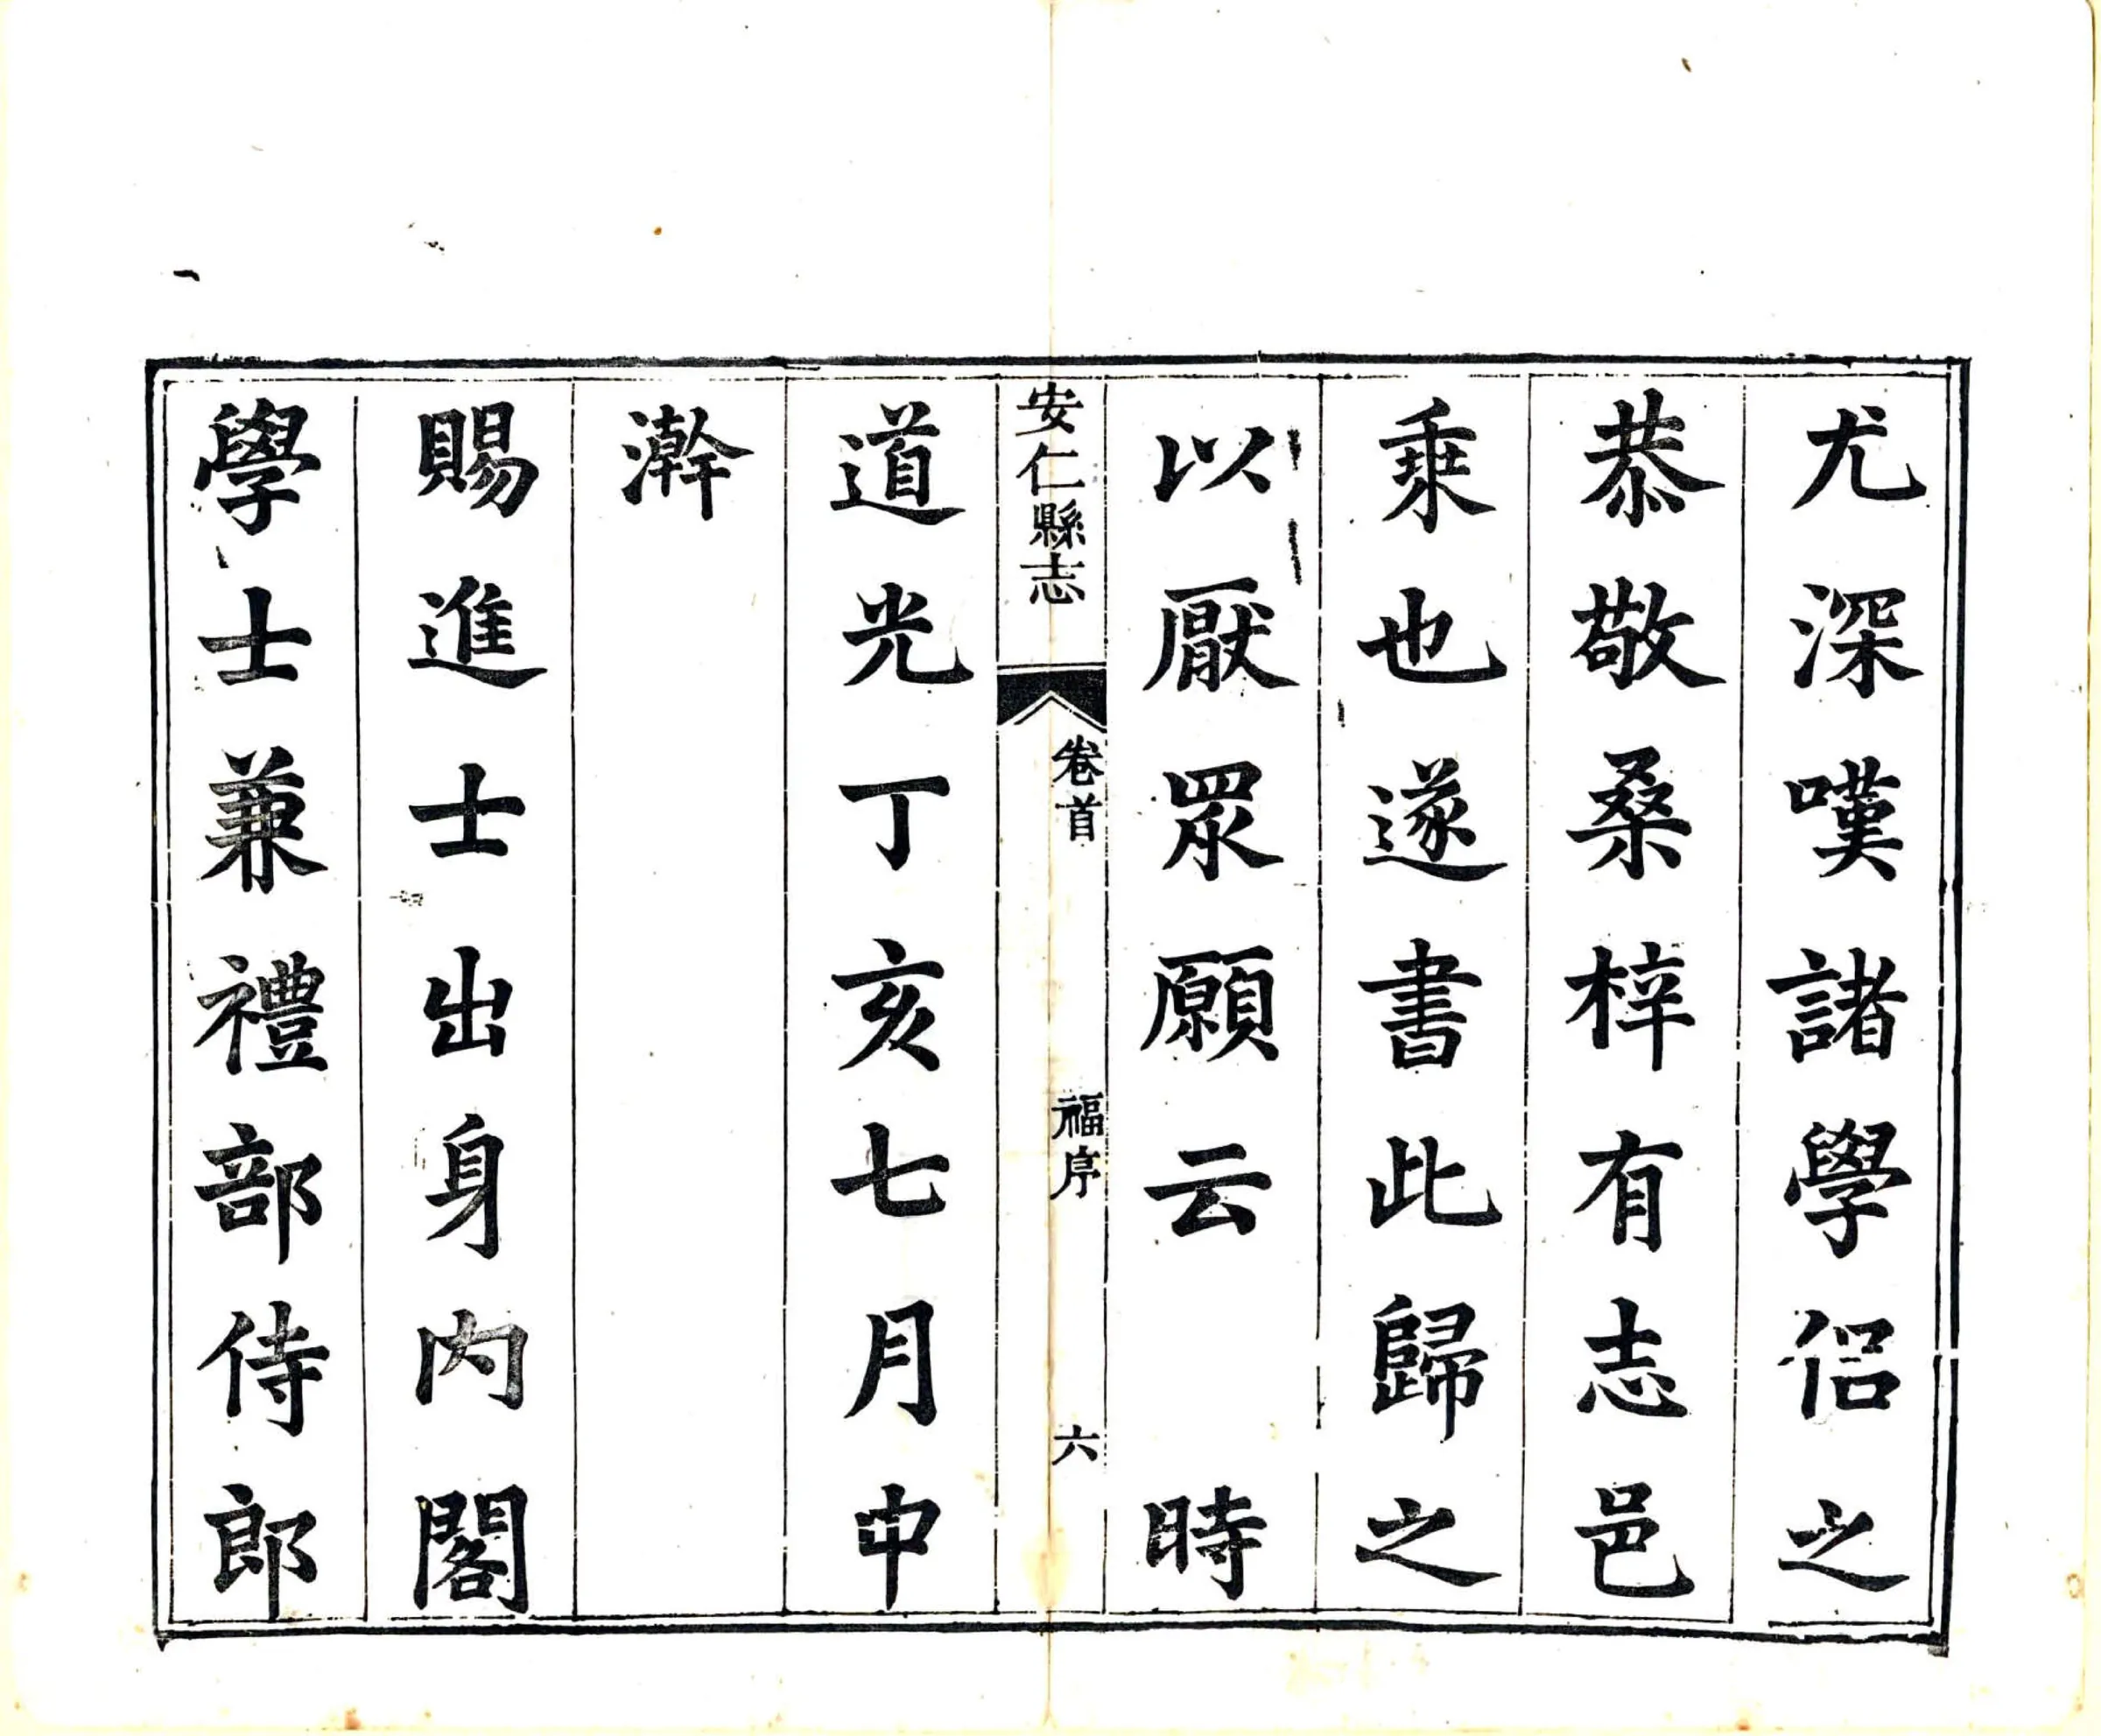 尤深嘆諸學侣之
恭敬桑梓有志邑
乗也遂書此歸之
以厭眾願云　時
安仁縣志
卷首
福序
六
道光丁亥七月中
澣
賜進士出身内閣
學士兼禮部侍郎